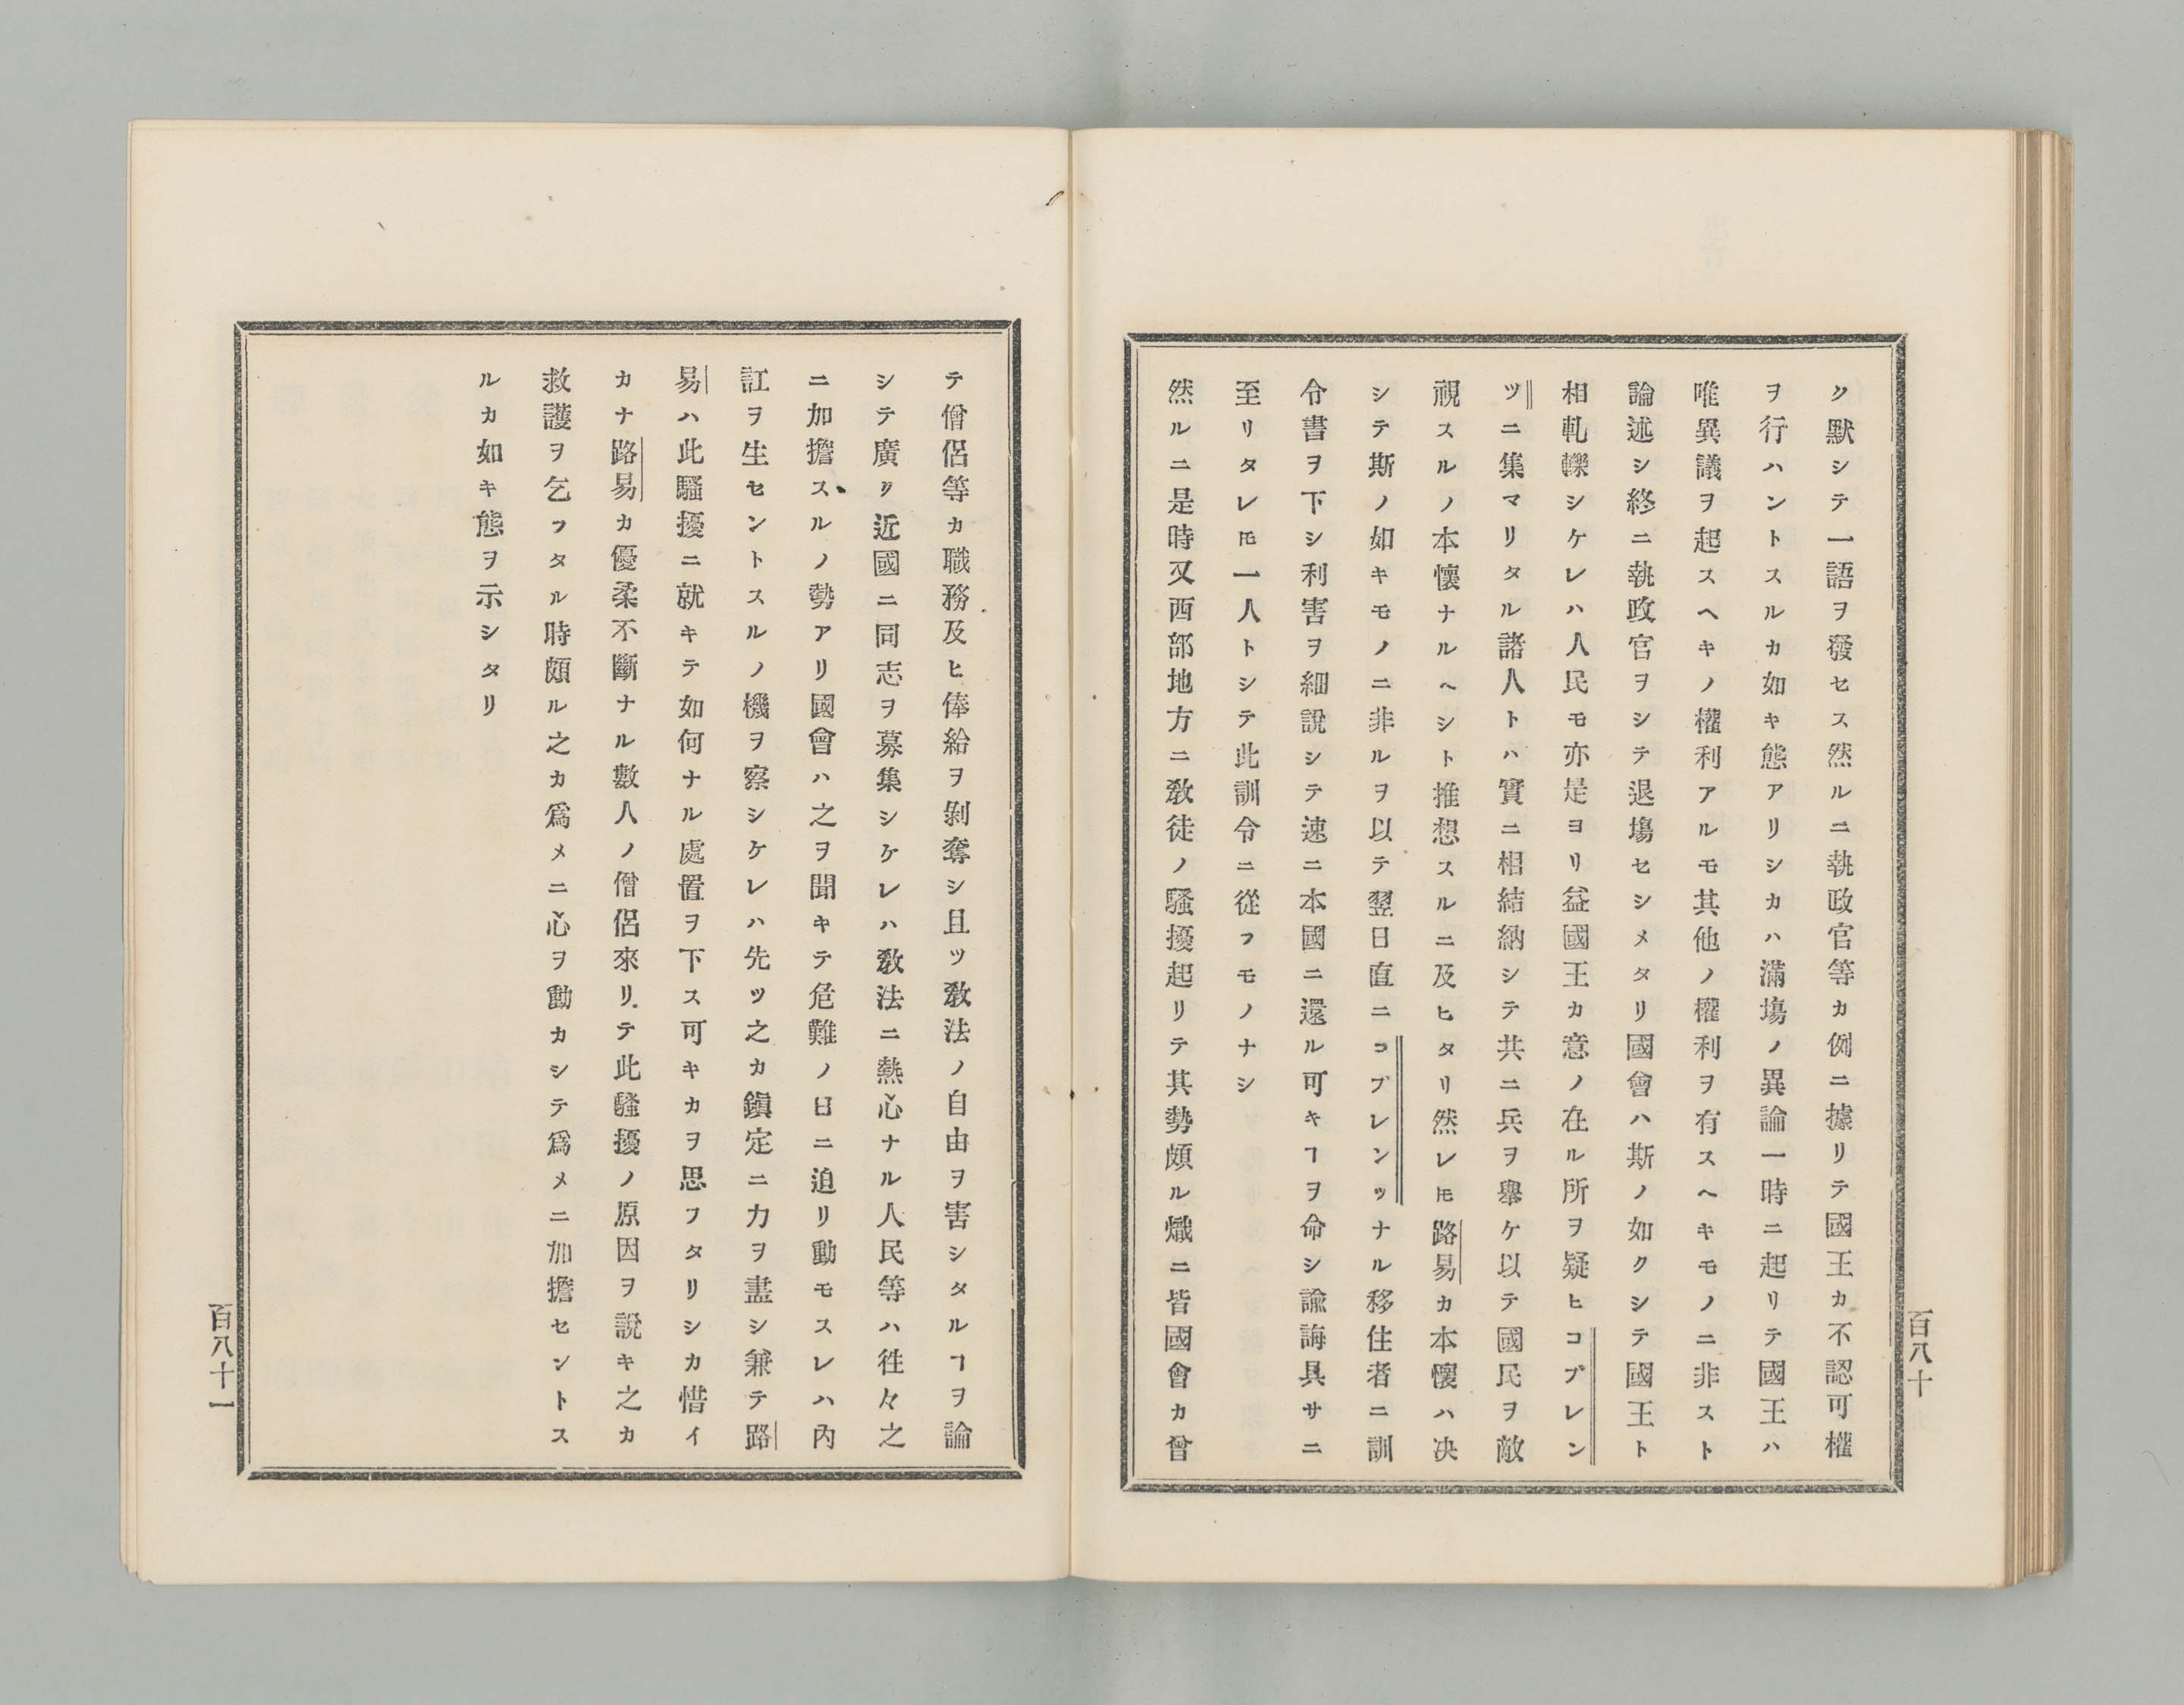 ク默シテ一語ヲ發セス然ルニ執政官等カ例ニ據リテ國王カ不認可權
ヲ行ハントスルカ如キ態アリシカハ滿塲ノ異論一時ニ起リテ國王ハ
唯異議ヲ起スヘキノ權利アルモ其他ノ權利ヲ有スヘキモノニ非スト
論述シ終ニ執政官ヲシテ退塲セシメタリ國會ハ斯ノ如クシテ國王ト
相軋轢シケレハ人民モ亦是ヨリ益國王カ意ノ在ル所ヲ疑ヒコブレン
ツニ集マリタル諸人トハ實ニ相結納シテ共ニ兵ヲ擧ケ以テ國民ヲ敵
視スルノ本懷ナルヘシト推想スルニ及ヒタリ然レ𪜈路易カ本懷ハ决
シテ斯ノ如キモノニ非ルヲ以テ翌日直ニコブレンッナル移住者ニ訓
令書ヲ下シ利害ヲ細說シテ速ニ本國ニ還ル可キヿヲ命シ諭誨具サニ
至リタレ𪜈一人トシテ此訓令ニ從フモノナシ
然ルニ是時又西部地方ニ敎徒ノ騷擾起リテ其勢頗ル熾ニ皆國會カ曾
百八十
テ僧侶等カ職務及ヒ俸給ヲ剝奪シ且ツ敎法ノ自由ヲ害シタルヿヲ論
シテ廣ク近國ニ同志ヲ募集シケレハ敎法ニ熱心ナル人民等ハ徃々之
ニ加擔スルノ勢アリ國會ハ之ヲ聞キテ危難ノ日ニ迫リ動モスレハ內
訌ヲ生セントスルノ機ヲ察シケレハ先ツ之カ鎭定ニ力ヲ盡シ兼テ路
易ハ此騷擾ニ就キテ如何ナル處置ヲ下ス可キカヲ思フタリシカ惜イ
カナ路易カ優柔不斷ナル數人ノ僧侶來リテ此騷擾ノ原因ヲ說キ之カ
救護ヲ乞フタル時頗ル之カ爲メニ心ヲ動カシテ爲メニ加擔セントス
ルカ如キ態ヲ示シタリ
百八十一